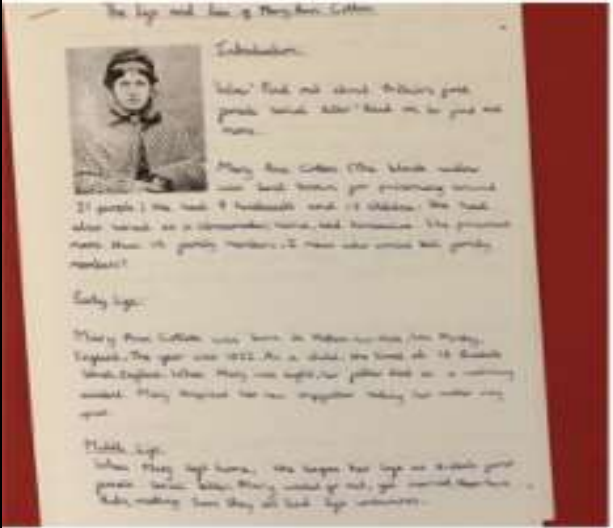 The life and lies of Mary Ann Cotton
Introduction
Wow! Find out about Britain's first
female serial killer! Read on to find out
more.
Mary Ann Cotton (The black widow
was best known for poisoning around
21 people.) She had 4 husbands and 13 children. She had
also worked as a dressmaker, nurse, and housewife. She poisoned
more than 15 family members. I mean who would kill family
members?
Early life:
Mary Ann Cotton was born in
England. The year was 1832. As a child, she lived at
England. When Mary was eight, her father died in a mining
accident. Mary her new stepfather her mother very
Middle life
When Mary left home, she began her life as Britain's first
female serial killer. Mary would go out, get married then have
making sure they all had life insurance.